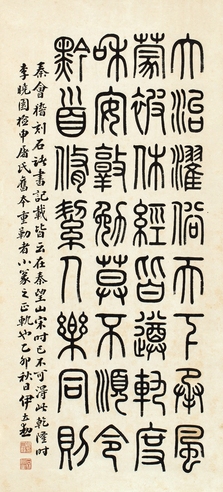 大治濯俗天下承風
蒙被休經皆遵軌度
和安敦勉莫不順令
黔首脩絜人樂同則
秦會稽刻石諸書記載皆云在秦望山宋時已不可得此乾隆時
李曉園檢申屠氏舊本重勒者小篆之正軌也乙卯秋日伊立勳